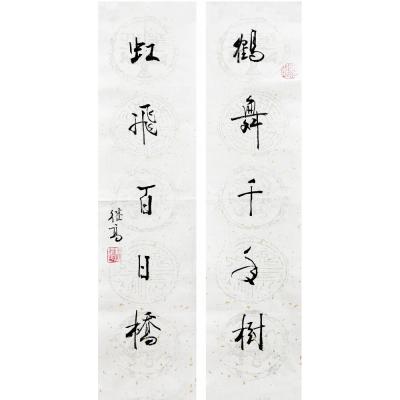 鶴舞千年樹
虹飛百日橋
継高